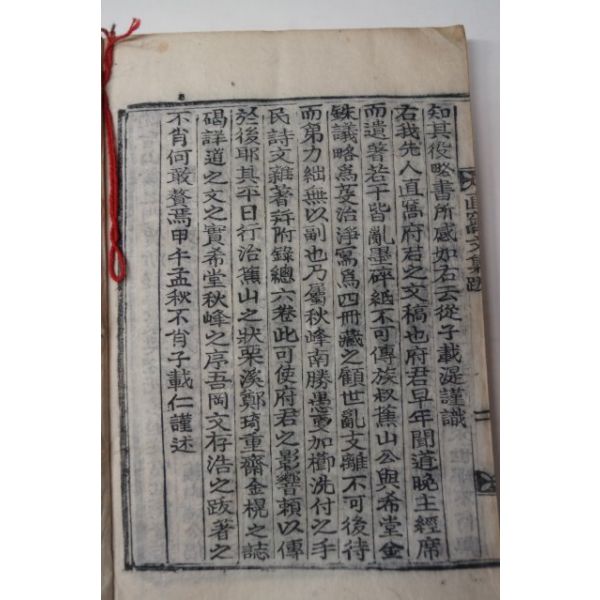 知其役略書所感如右云從子載湜謹識
右我先人直窩府君之文稿也府君早年聞道晚主經席
而遺著若干皆亂墨碎紙不可傳族叔蕉山公與希堂金
銖議略爲㝎治淨寫爲四冊藏之顧世亂支離不可後待
而第力絀無以副也乃屬秋峰南勝愚更加櫛洗付之手
民詩文雜著幷附錄總六卷此可使府君之影響賴以傳
於後耶其平日行治蕉山之狀栗溪鄭琦重齋金榥之誌
碣詳道之文之實希堂秋峰之序吾岡文存浩之跋著之
不肖何敢贅焉甲午孟秋不肖子載仁謹述
直窩文集跋